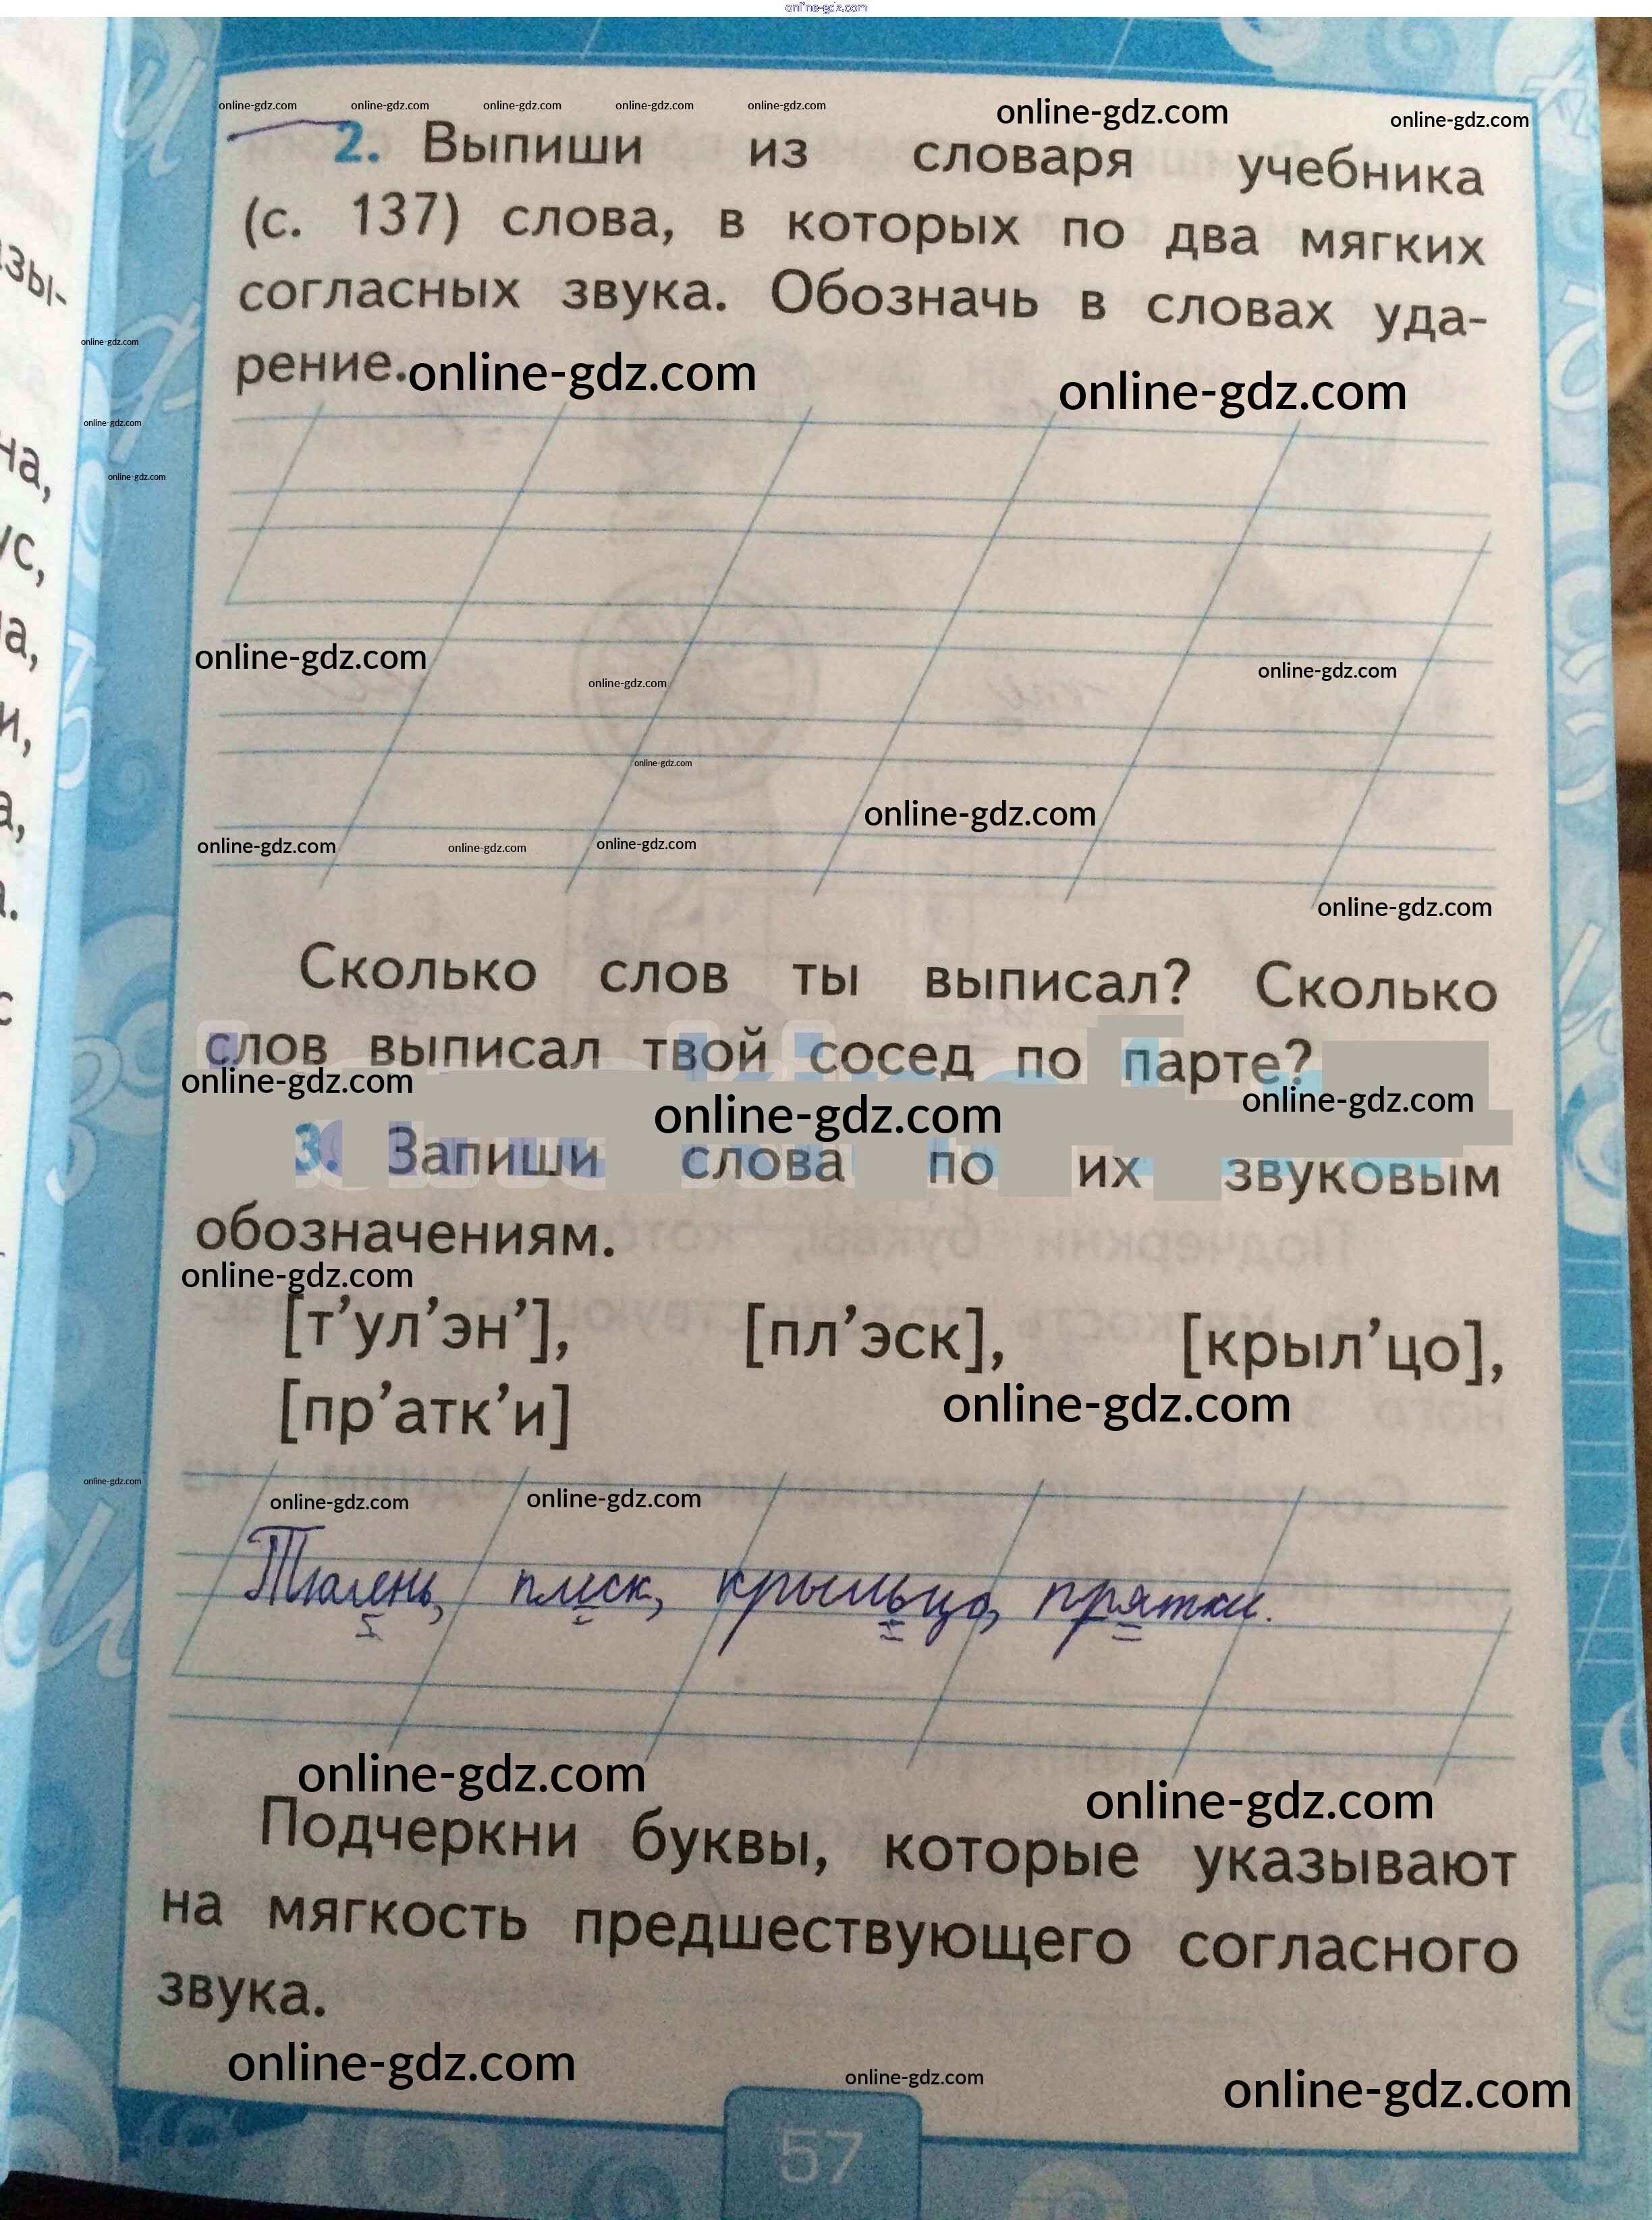 online-gdz.com
online-gdz.com online-gdz.com online-gdz.com online-gdz.com online-gdz.com online-gdz.com online-gdz.com
2. Выпиши из словаря учебника
(с. 137) слова, в которых по два мягких
согласных звука. Обозначь в словах уда-
рение. online-gdz.com online-gdz.com
online-gdz.com
online-gdz.com
online-gdz.com
зы-
на,
ус,
а,
и,
а,
а.
с
online-gdz.com online-gdz.com online-gdz.com
online-gdz.com
online-gdz.com
online-gdz.com online-gdz.com online-gdz.com
online-gdz.com
Сколько слов ты выписал? Сколько
слов выписал твой сосед по парте?
online-gdz.com online-gdz.com online-gdz.com
3. Запиши слова по их звуковым
обозначениям.
online-gdz.com
[т’ул’эн’], [пл’эск], [крыл’цо],
[пр’атк’и] online-gdz.com
online-gdz.com online-gdz.com online-gdz.com
Тюлень, плеск, крыльцо, прятки.
online-gdz.com online-gdz.com
Подчеркни буквы, которые указывают
на мягкость предшествующего согласного
звука.
online-gdz.com online-gdz.com online-gdz.com
57